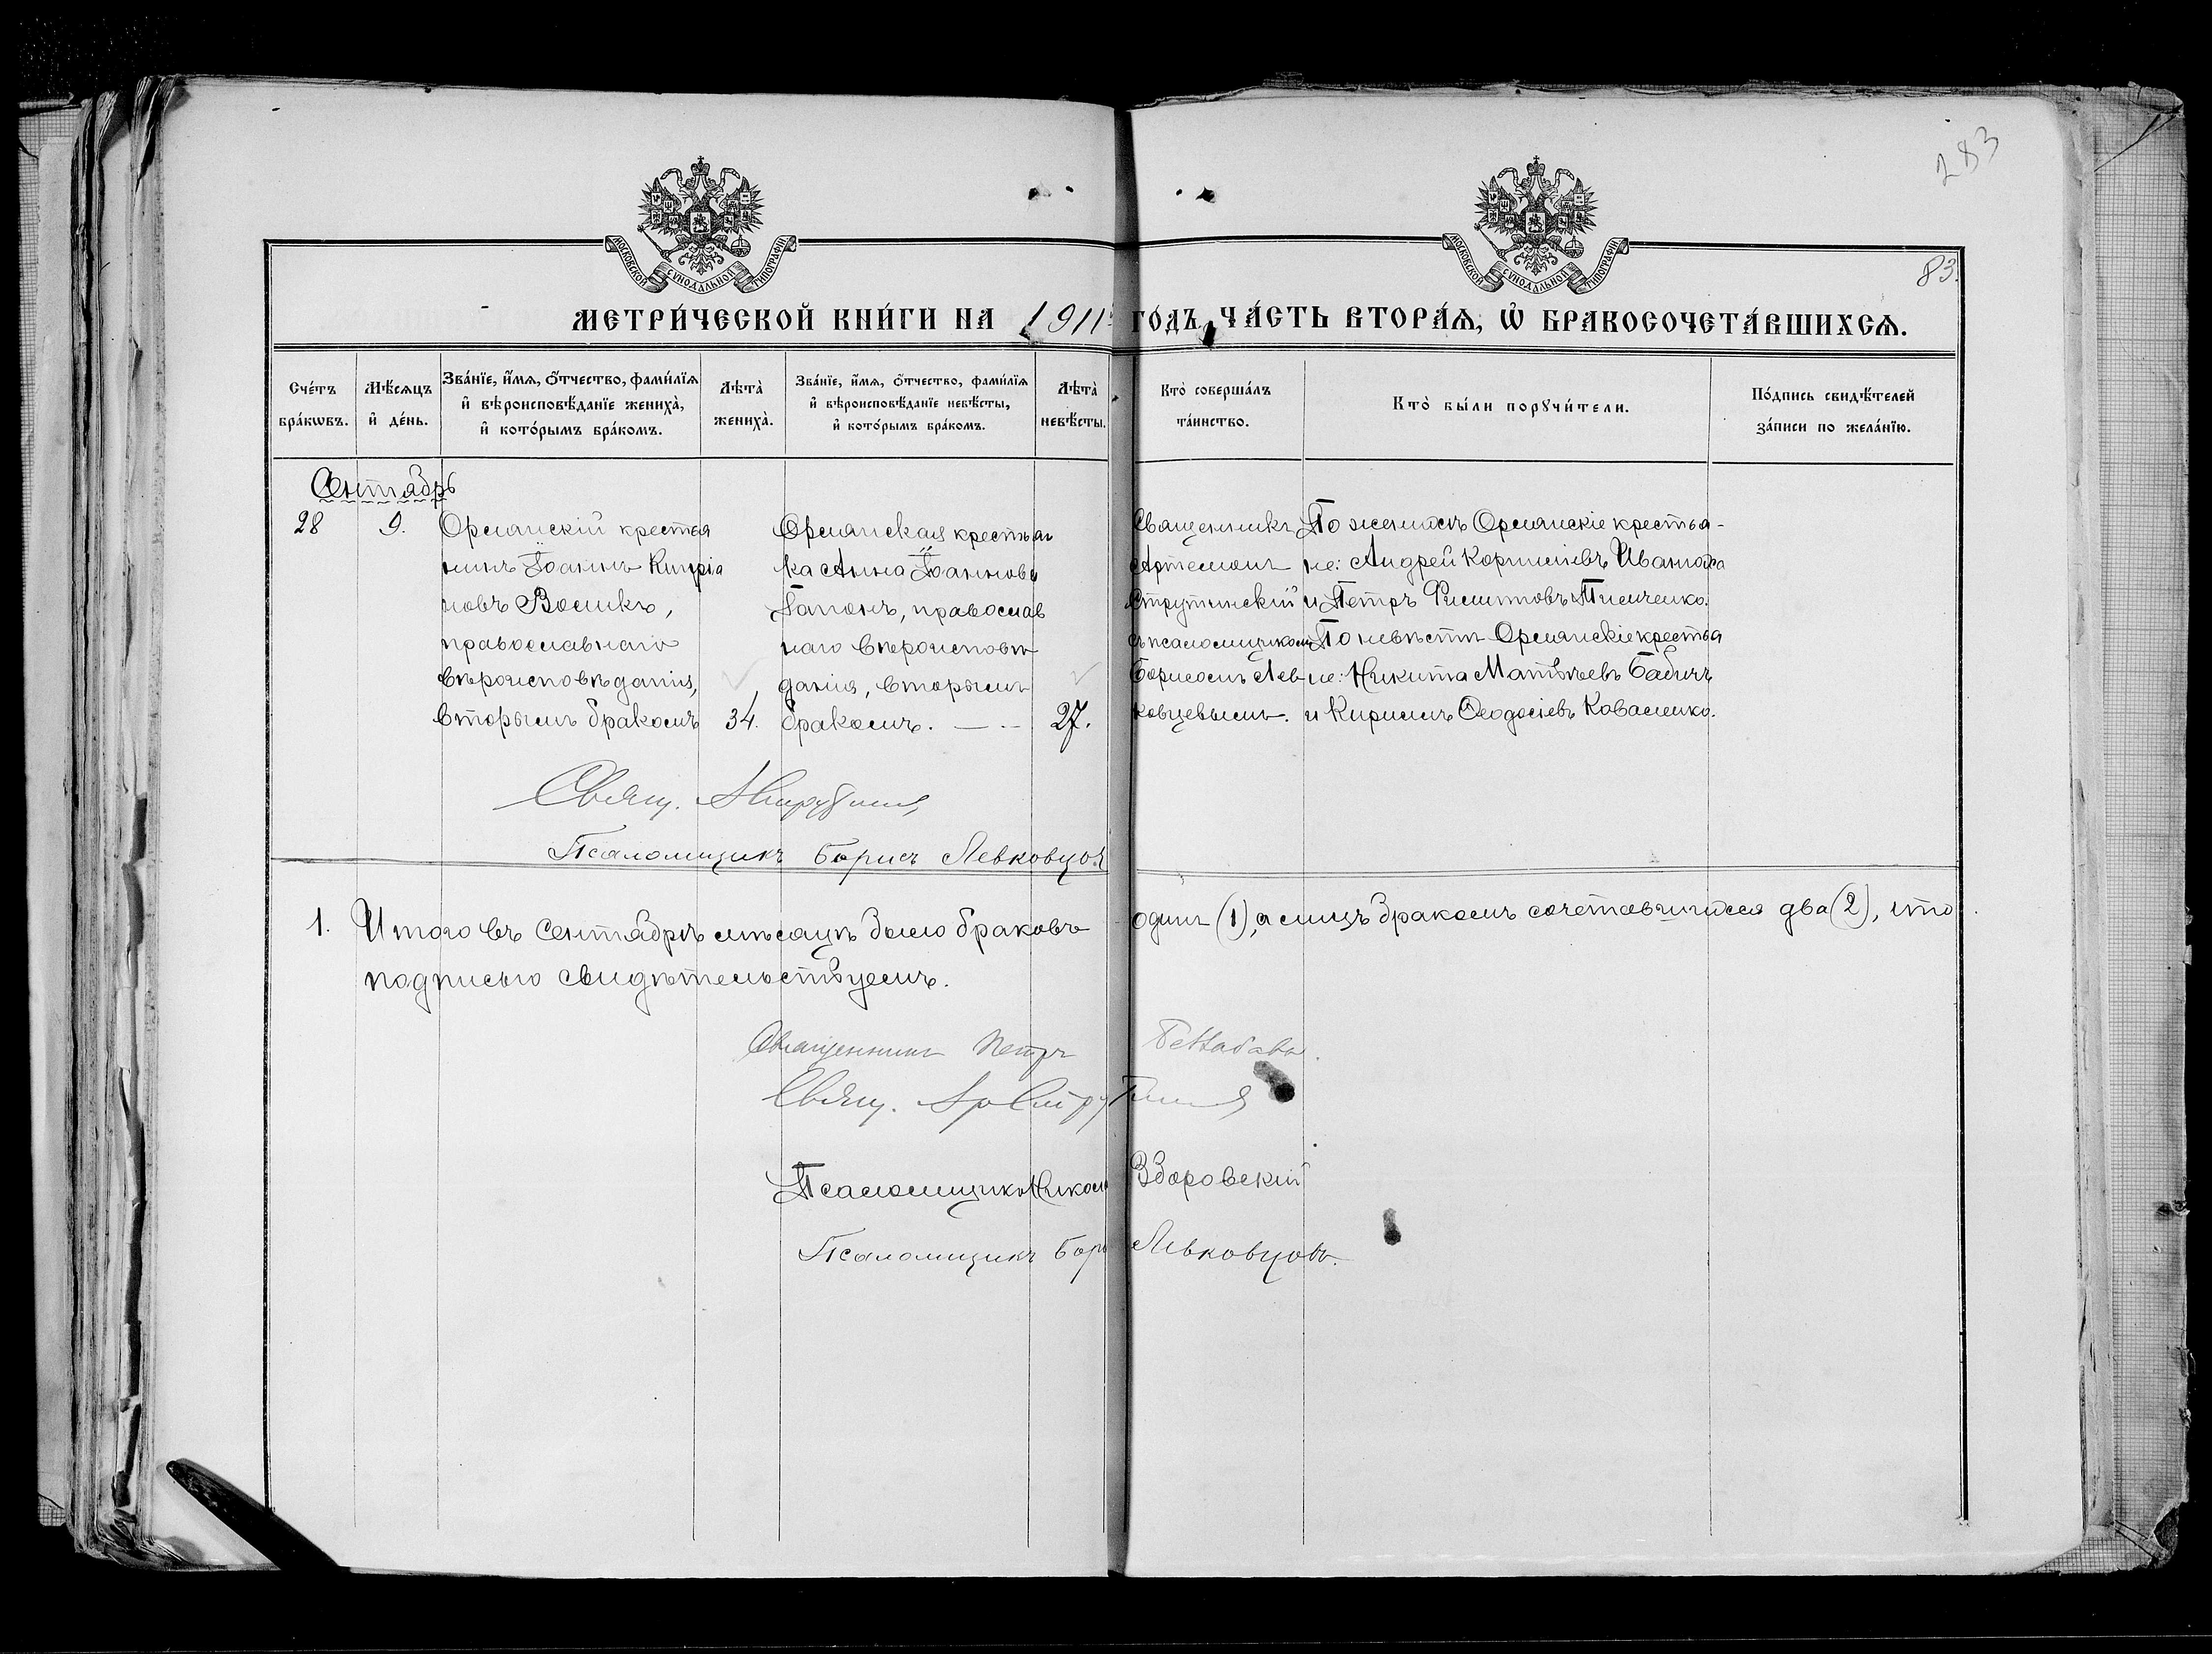 283
МОСКОВСКОЙ СѴНОДАЛЬНОЙ ТИПОГРАФІИ
МОСКОВСКОЙ СѴНОДАЛЬНОЙ ТИПОГРАФІИ
83.
МЕТРИ́ЧЕСКОЙ КНИ́ГИ НА 1911 ГО́ДЪ, ЧА́СТЬ ВТОРА́Ѧ, Ѡ҆ БРАКОСОЧЕТА́ВШИХСѦ.
Сче́тъ бра́кѡвъ.
Мѣ́сѧцъ и҆ де́нь.
Зва́нїе, и҆́мѧ, ѻ҆́тчество, фами́лїѧ
и҆ вѣроисповѣ́данїе жениха̀,
и҆ кото́рымъ бра́комъ.
Лѣта̀ жениха̀.
Зва́нїе, и҆́мѧ, ѻ҆́тчество, фами́лїѧ
и҆ вѣроисповѣ́данїе невѣ́сты,
и҆ кото́рымъ бра́комъ.
Лѣта̀ невѣ́сты.
Кто̀ соверша́лъ та́инство.
Кто̀ бы́ли порꙋчи́тели.
По́дпись свидѣ́телей за́писи по жела́нїю.
Сентябрь
28
9.
Орлянскій крестья
нинъ Іоаннъ Кипрія
новъ Воликъ,
православнаго
вѣроисповѣданія,
вторымъ бракомъ
34.
Орлянская крестьян
ка Анна Іоаннова
Гапонъ, православ
наго вѣроисповѣ
данія, вторымъ
бракомъ. — —
27.
Священникъ
Артемонъ
Струтинскій
съ псаломщикомъ
Борисомъ Лев-
ковцевымъ.
По женихѣ Орлянскіе крестья-
не: Андрей Корниліевъ Иваноса
и Петръ Филипповъ Пилченко.
По невѣстѣ Орлянскіе крестья
не: Никита Матвѣевъ Бабичъ
и Кириллъ Ѳеодосіевъ Коваленко.
Свящ. А Струтинскій
Псаломщикъ Борисъ Левковцовъ
1. Итого въ Сентябрѣ мѣсяцѣ было браковъ одинъ (1), а лицъ бракомъ сочетавшихся два (2), что
подписью свидѣтельствуемъ.
Священникъ Петръ
Свящ. Ар Струтинскій
Псаломщикъ Никол Здоровскій
Псаломщикъ Бори Левковцовъ.